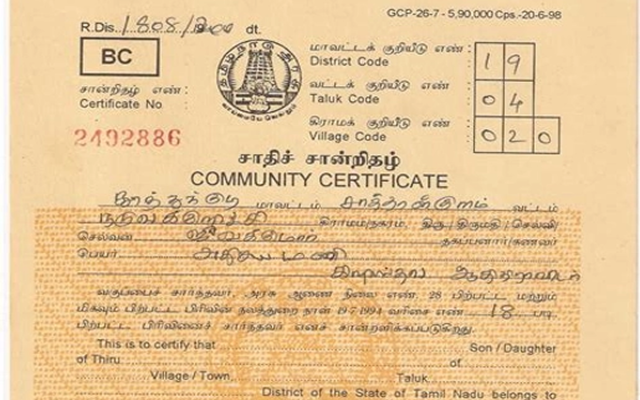 GCP-26-7 - 5,90,000 Cps.-20-6-98
R.Dis. 1808/ dt.
BC
தமிழ்நாடு அரசு
வாய்மையே வெல்லும்
மாவட்டக் குறியீடு எண் :
District Code
1 9
வட்டக் குறியீடு எண் :
Taluk Code
0 4
கிராமக் குறியீடு எண் :
Village Code
0 2 0
சான்றிதழ் எண் :
Certificate No
2492886
சாதிச் சான்றிதழ்
COMMUNITY CERTIFICATE
தூத்துக்குடி மாவட்டம் சாத்தான்குளம் வட்டம்
கிராமம்/நகரம், திரு/திருமதி/செல்வி/
செல்வன் தகப்பனார்/கணவர்
பெயர்
வகுப்பைச் சார்ந்தவர், அரசு ஆணை நிலை எண். 28 பிற்பட்ட மற்றும்
மிகவும் பிற்பட்ட பிரிவின் நலத்துறை நாள் 19-7-1994 வரிசை எண் 18 படி
பிற்பட்ட பிரிவினைச் சார்ந்தவர் எனச் சான்றளிக்கப்படுகிறது.
This is to certify that Son / Daughter
of Thiru. of
Village / Town. Taluk.
District of the State of Tamil Nadu belongs to